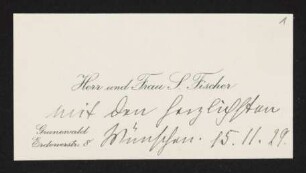 1
Herr und Frau S. Fischer
mit den herzlichsten
Grunewald
Wünschen. 15.11.29.
Erdenerstr. 8